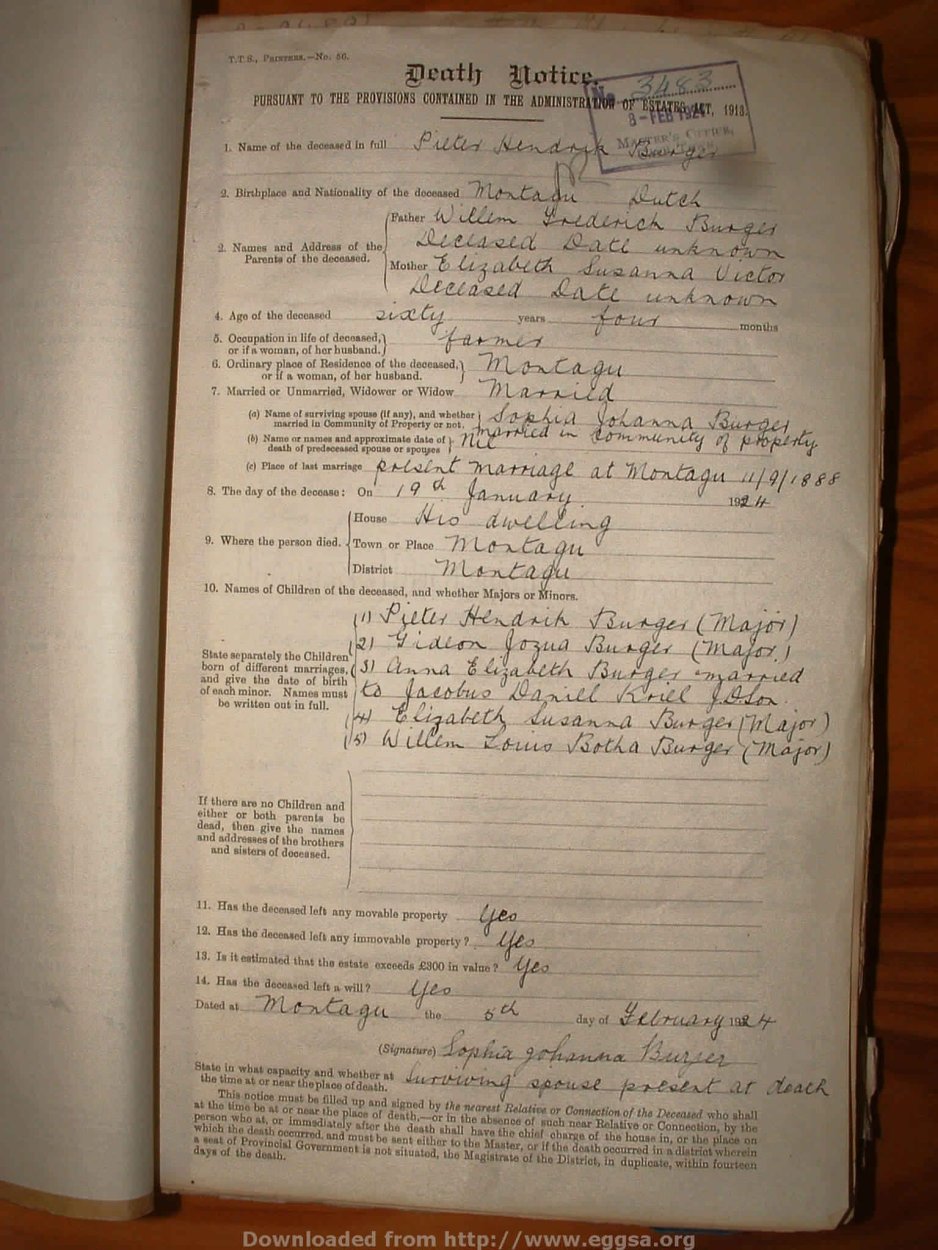 T.T.S., PRINTERS.—No. 56.
Death Notice.
PURSUANT TO THE PROVISIONS CONTAINED IN THE ADMINISTRATION OF ESTATES ACT, 1913.
No. 3483
8-FEB 1924
MASTER'S OFFICE,
1. Name of the deceased in full Pieter Hendrik Burger
2. Birthplace and Nationality of the deceased Montagu Dutch
2. Names and Address of the Parents of the deceased.
Father Willem Frederich Burger
Deceased Date unknown
Mother Elizabeth Susanna Victor
Deceased Date unknown
4. Age of the deceased sixty years four months
5. Occupation in life of deceased, or if a woman, of her husband. farmer
6. Ordinary place of Residence of the deceased, or if a woman, of her husband. Montagu
7. Married or Unmarried, Widower or Widow Married
(a) Name of surviving spouse (if any), and whether married in Community of Property or not. Sophia Johanna Burger
married in community of property
(b) Name or names and approximate date of death of predeceased spouse or spouses Nil
(c) Place of last marriage present marriage at Montagu 11/9/1888
8. The day of the decease: On 19th January 1924
9. Where the person died.
House His dwelling
Town or Place Montagu
District Montagu
10. Names of Children of the deceased, and whether Majors or Minors.
State separately the Children
born of different marriages,
and give the date of birth
of each minor. Names must
be written out in full.
(1) Pieter Hendrik Burger (Major)
(2) Gideon Jozua Burger (Major)
(3) Anna Elizabeth Burger married
to Jacobus Daniel Kriel J.D.Son
(4) Elizabeth Susanna Burger (Major)
(5) Willem Louis Botha Burger (Major)
If there are no Children and
either or both parents be
dead, then give the names
and addresses of the brothers
and sisters of deceased.
11. Has the deceased left any movable property Yes
12. Has the deceased left any immovable property? Yes
13. Is it estimated that the estate exceeds £300 in value? Yes
14. Has the deceased left a will? Yes
Dated at Montagu the 5th day of February 1924
(Signature) Sophia Johanna Burger
State in what capacity and whether at
the time at or near the place of death. Surviving spouse present at death
This notice must be filled up and signed by the nearest Relative or Connection of the Deceased who shall
at the time be at or near the place of death,—or in the absence of such near Relative or Connection, by the
person who at, or immediately after the death shall have the chief charge of the house in, or the place on
which the death occurred, and must be sent either to the Master, or if the death occurred in a district wherein
a seat of Provincial Government is not situated, the Magistrate of the District, in duplicate, within fourteen
days of the death.
Downloaded from http://www.eggsa.org